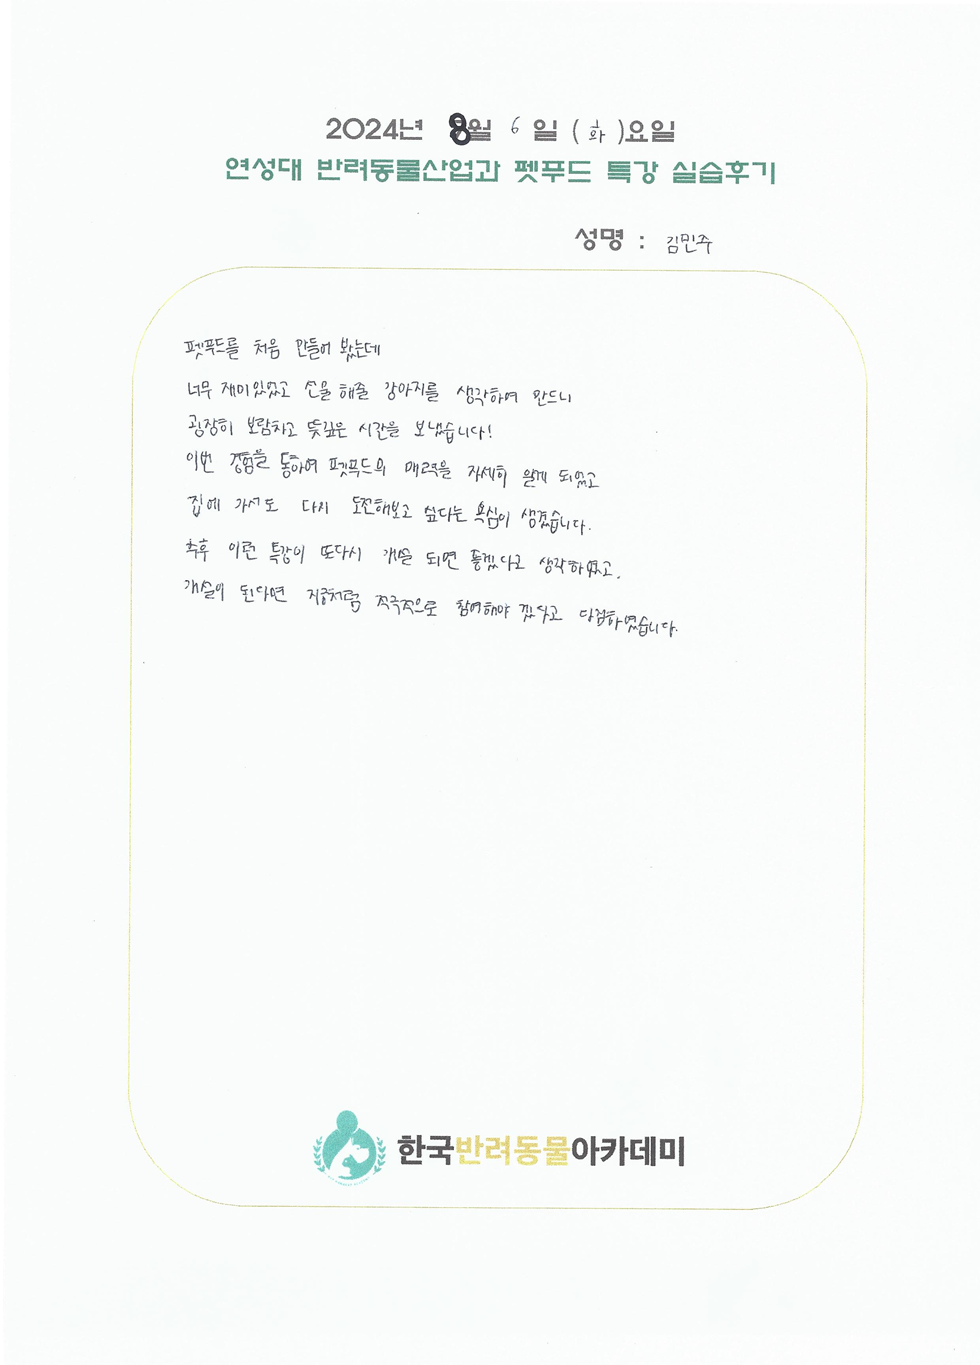 2024년 8월 6일 (화)요일
연성대 반려동물산업과 펫푸드 특강 실습후기
성명 : 김민주
펫푸드를 처음 만들어 봤는데
너무 재미있었고 선물 해줄 강아지를 생각하여 만드니
굉장히 보람차고 뜻깊은 시간을 보냈습니다!
이번 경험을 통하여 펫푸드의 매력을 자세히 알게 되었고
집에 가서도 다시 도전해보고 싶다는 욕심이 생겼습니다.
추후 이런 특강이 또다시 개설 되면 좋겠다고 생각하였고.
개설이 된다면 지금처럼 적극적으로 참여해야 겠다고 다짐하였습니다.
한국반려동물아카데미